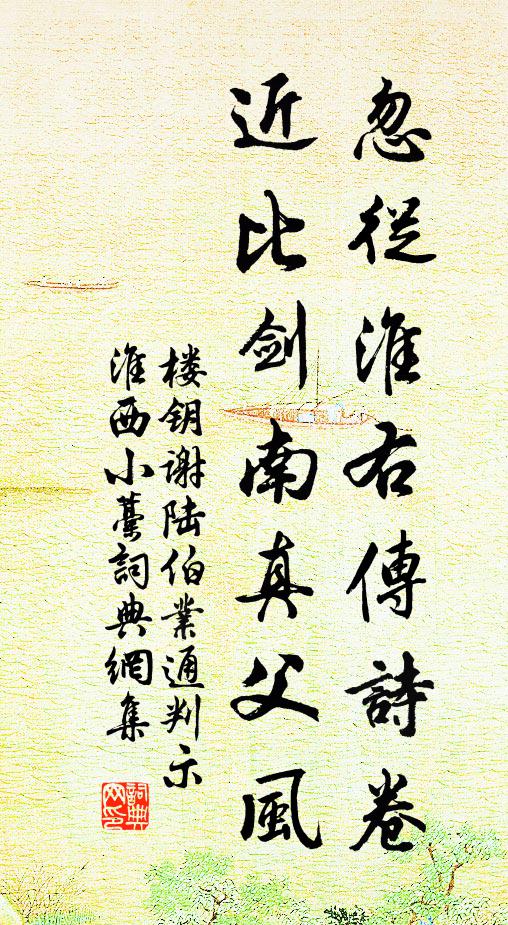 忽從淮右傳詩卷
近比劍南真父風
楼钥谢陆伯業通判示
淮西小藁詞典網集
詞典網印